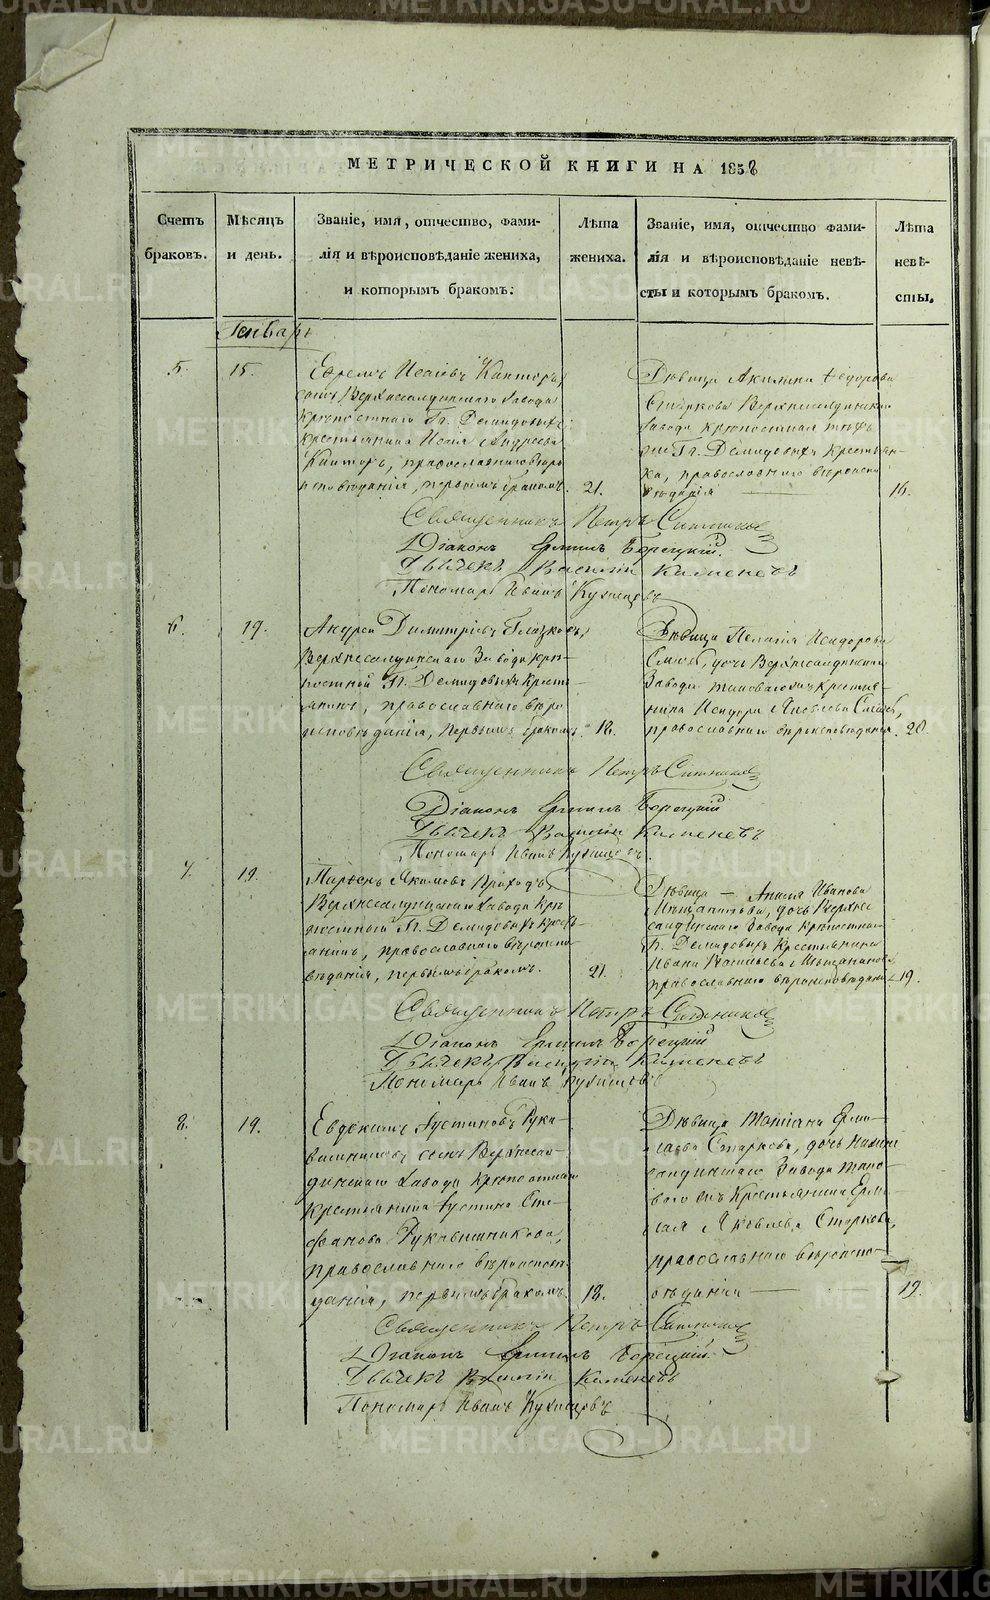 МЕТРИЧЕСКОЙ КНИГИ НА 1858
Счетъ браковъ.
Мѣсяцъ и день.
Званіе, имя, отчество, фами-
лія и вѣроисповѣданіе жениха,
и которымъ бракомъ.
Лѣта жениха.
Званіе, имя, отчество фами-
лія и вѣроисповѣданіе невѣ-
сты и которымъ бракомъ.
Лѣта невѣ-
сты.
Генварь
5.
15.
Ефремъ Исаіевъ Канторъ,
сынъ Верхнесалдинскаго Завода
крѣпостнаго Гг. Демидовыхъ
крестьянина Исаія Андреева
Канторъ, православнаго вѣро
исповѣданія, первымъ бракомъ.
21.
Дѣвица Акилина Ѳедорова
Старкова Верхнесалдинскаго
Завода крѣпостная тѣхъ
же Гг. Демидовыхъ крестьян-
ка, православнаго вѣроиспо
вѣданія
16.
Священникъ Петръ Ситниковъ
Діаконъ Ермилъ Борецкій.
Дьячекъ Василій Каменевъ
Пономарь Иванъ
6.
19.
Андрей Димитріевъ Глазковъ,
Верхнесалдинскаго Завода крѣ-
постной Гг. Демидовыхъ кресть-
янинъ, православнаго вѣро
исповѣданія, первымъ бракомъ
18.
Дѣвица Пелагія Исидорова
дочь Верхнесалдинскаго
Завода таковаго жъ крестья-
нина Исидора Яковлева
православнаго вѣроисповѣданія.
20.
Священникъ Петръ Ситниковъ
Діаконъ Ермилъ Борецкій
Дьячекъ Василій Каменевъ
Пономарь Иванъ
7.
19.
Акимовъ
Верхнесалдинскаго Завода крѣ
постный Гг. Демидовыхъ крест-
янинъ, православнаго вѣроиспо
вѣданія, первымъ бракомъ.
21.
Дѣвица — Иванова
дочь Верхне
салдинскаго Завода крѣпостнаго
Гг. Демидовыхъ крестьянина
Ивана Васильева
православнаго вѣроисповѣданія
19.
Священникъ Петръ Ситниковъ
Діаконъ Ермилъ Борецкій
Дьячекъ Василій Каменевъ
Пономарь Иванъ
8.
19.
Евдокимъ Іустиновъ Рука-
вишниковъ сынъ Верхнесал-
динскаго Завода крѣпостнаго
крестьянина Іустина Сте-
фанова Рукавишникова,
православнаго вѣроисповѣ-
данія, первымъ бракомъ
18.
Дѣвица Татіана Ерми-
лаева Старкова, дочь Нижне
салдинскаго Завода тако-
ваго жъ крестьянина Ерми-
лая Яковлева Старкова,
православнаго вѣроиспо-
вѣданія
19.
Священникъ Петръ Ситниковъ
Діаконъ Ермилъ Борецкій.
Дьячекъ Василій Каменевъ
Пономарь Иванъ
METRIKI.GASO-URAL.RU